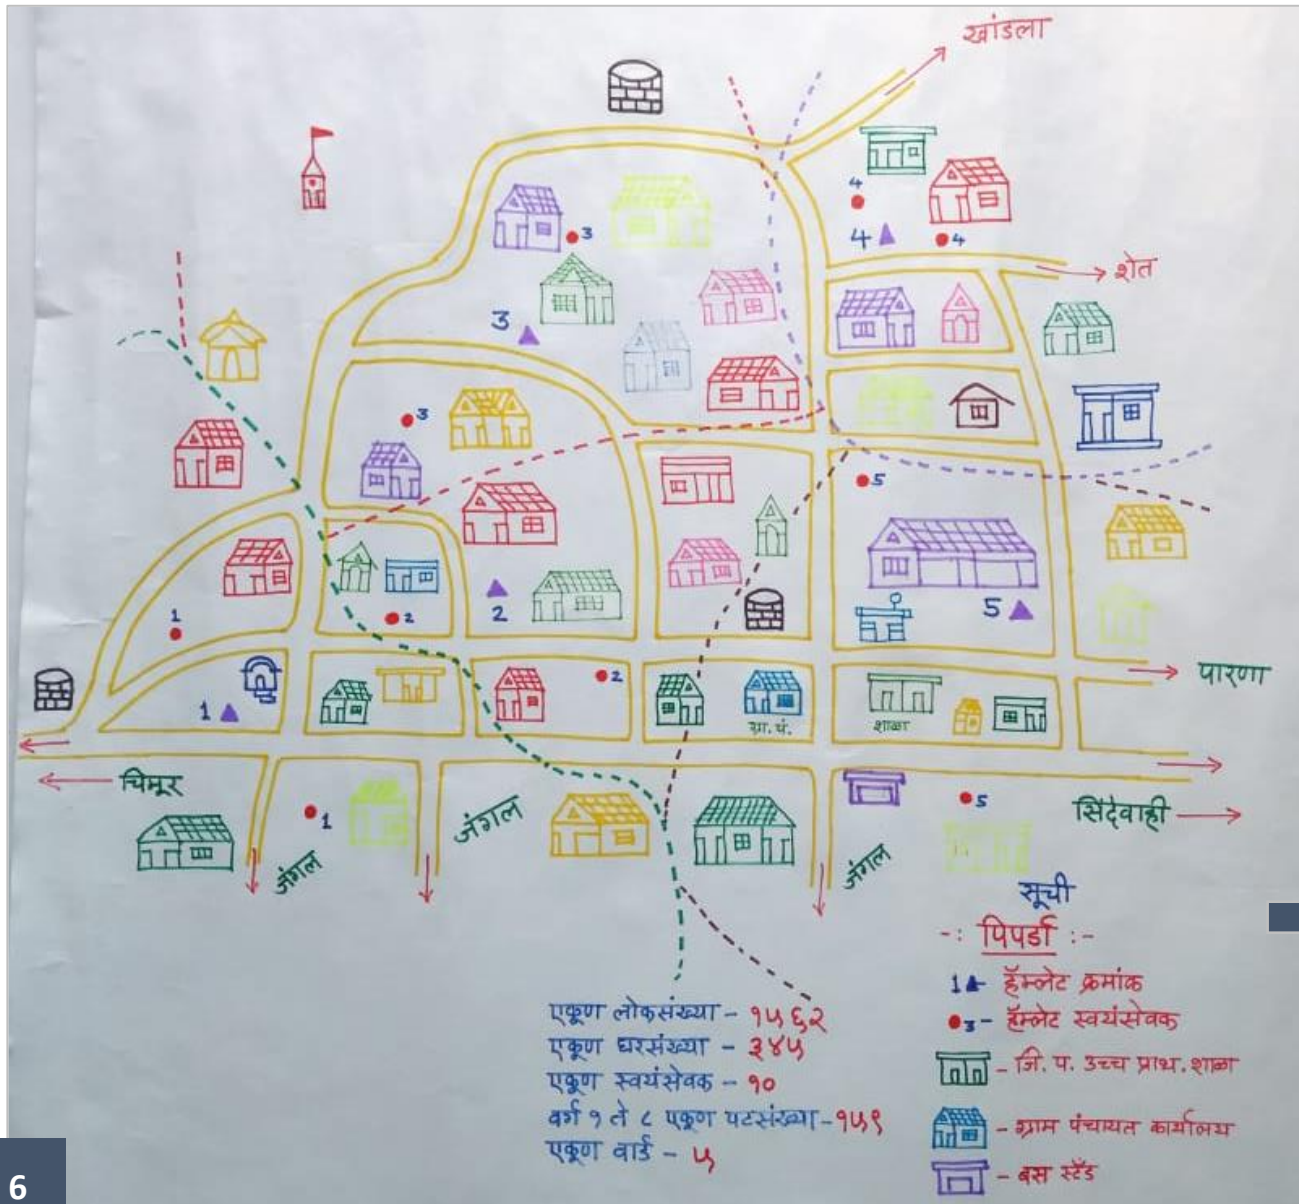 खांडला
3
4
4
4
शेत
3
3
5
1
2
2
5
2
पारणा
1
ग्रा. पं.
शाळा
चिमूर
1
जंगल
जंगल
जंगल
5
सिंदेवाही
सूची
-: पिपर्डा :-
1 - हॅम्लेट क्रमांक
3 - हॅम्लेट स्वयंसेवक
- जि. प. उच्च प्राथ. शाळा
- ग्राम पंचायत कार्यालय
- बस स्टँड
एकूण लोकसंख्या - १५६२
एकूण घरसंख्या - ३४५
एकूण स्वयंसेवक - १०
वर्ग १ ते ८ एकूण पटसंख्या - १५९
एकूण वार्ड - ५
6